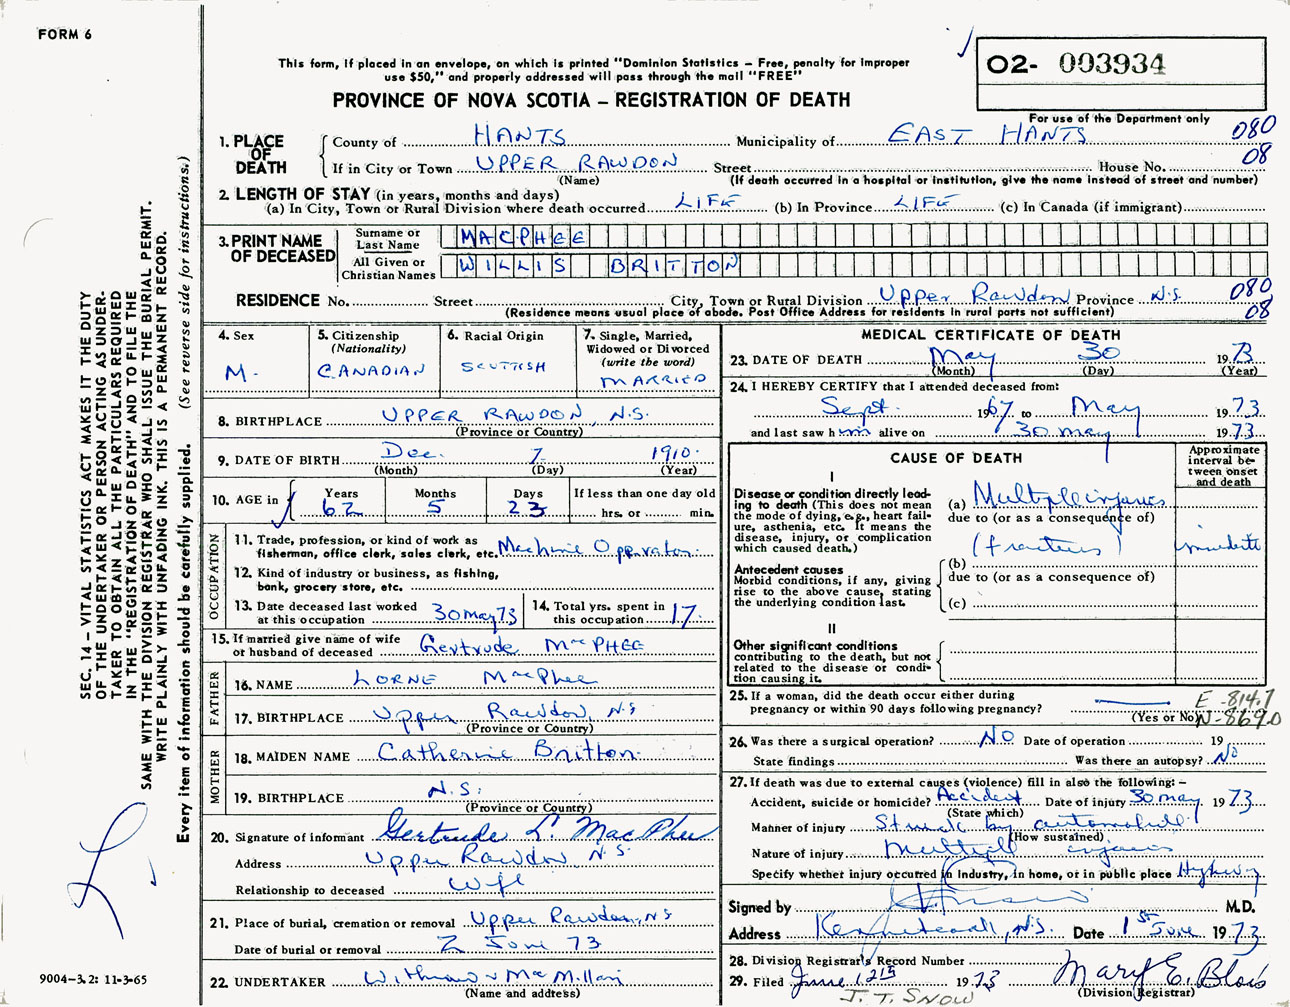 FORM 6
This form, if placed in an envelope, on which is printed "Dominion Statistics – Free, penalty for improper
use $50," and properly addressed will pass through the mail "FREE"
PROVINCE OF NOVA SCOTIA – REGISTRATION OF DEATH
O2- 003934
For use of the Department only
1. PLACE OF DEATH County of HANTS Municipality of EAST HANTS 080
If in City or Town UPPER RAWDON Street House No. 08
(Name) (If death occurred in a hospital or institution, give the name instead of street and number)
2. LENGTH OF STAY (in years, months and days)
(a) In City, Town or Rural Division where death occurred LIFE (b) In Province LIFE (c) In Canada (if immigrant)
3. PRINT NAME OF DECEASED
Surname or Last Name MACPHEE
All Given or Christian Names WILLIS BRITTON
RESIDENCE No. Street City, Town or Rural Division Upper Rawdon Province N.S. 080
(Residence means usual place of abode. Post Office Address for residents in rural parts not sufficient) 08
4. Sex
M.
5. Citizenship
(Nationality)
CANADIAN
6. Racial Origin
SCOTTISH
7. Single, Married,
Widowed or Divorced
(write the word)
MARRIED
8. BIRTHPLACE UPPER RAWDON, N.S.
(Province or Country)
9. DATE OF BIRTH Dec. 7 1910
(Month) (Day) (Year)
10. AGE in Years Months Days If less than one day old
62 5 23 hrs. or min.
OCCUPATION
11. Trade, profession, or kind of work as
fisherman, office clerk, sales clerk, etc. Machine Opperator
12. Kind of industry or business, as fishing,
bank, grocery store, etc.
13. Date deceased last worked
at this occupation 30 May 73
14. Total yrs. spent in
this occupation 17.
15. If married give name of wife
or husband of deceased Gertrude MacPHEE
FATHER
16. NAME LORNE MacPhee
17. BIRTHPLACE Upper Rawdon, N.S
(Province or Country)
MOTHER
18. MAIDEN NAME Catherine Britton
19. BIRTHPLACE N.S.
(Province or Country)
20. Signature of informant Gertrude L. MacPhee
Address Upper Rawdon N.S.
Relationship to deceased Wife
21. Place of burial, cremation or removal Upper Rawdon, NS
Date of burial or removal 2 June 73
22. UNDERTAKER MacMillan
(Name and address)
MEDICAL CERTIFICATE OF DEATH
23. DATE OF DEATH May 30 1973
(Month) (Day) (Year)
24. I HEREBY CERTIFY that I attended deceased from:
Sept. 1967 to May 1973
and last saw him alive on 30 May 1973
CAUSE OF DEATH
Approximate
interval be-
tween onset
and death
I
Disease or condition directly lead-
ing to death (This does not mean
the mode of dying, e.g., heart fail-
ure, asthenia, etc. It means the
disease, injury, or complication
which caused death.)
(a) Multiple injuries
due to (or as a consequence of)
Antecedent causes
Morbid conditions, if any, giving
rise to the above cause, stating
the underlying condition last.
(b)
due to (or as a consequence of)
(c)
II
Other significant conditions
contributing to the death, but not
related to the disease or condi-
tion causing it.
25. If a woman, did the death occur either during
pregnancy or within 90 days following pregnancy?
(Yes or No)
E-814.7
N-869.0
26. Was there a surgical operation? NO Date of operation 19
State findings Was there an autopsy? No
27. If death was due to external causes (violence) fill in also the following:–
Accident, suicide or homicide? Accident Date of injury 30 May 1973
(State which)
Manner of injury Struck by automobile
(How sustained)
Nature of injury Multiple injuries
Specify whether injury occurred in industry, in home, or in public place Highway
Signed by M.D.
Address Kennetcook, N.S. Date 1st June 1973
28. Division Registrar's Record Number
29. Filed June 1973 Mary E. Blois
(Division Registrar)
J. T. SNOW
SEC. 14 – VITAL STATISTICS ACT MAKES IT THE DUTY
OF THE UNDERTAKER OR PERSON ACTING AS UNDER-
TAKER TO OBTAIN ALL THE PARTICULARS REQUIRED
IN THE "REGISTRATION OF DEATH" AND TO FILE THE
SAME WITH THE DIVISION REGISTRAR WHO SHALL ISSUE THE BURIAL PERMIT.
WRITE PLAINLY WITH UNFADING INK. THIS IS A PERMANENT RECORD.
Every item of information should be carefully supplied. (See reverse side for instructions.)
9004-3.2: 11-3-65